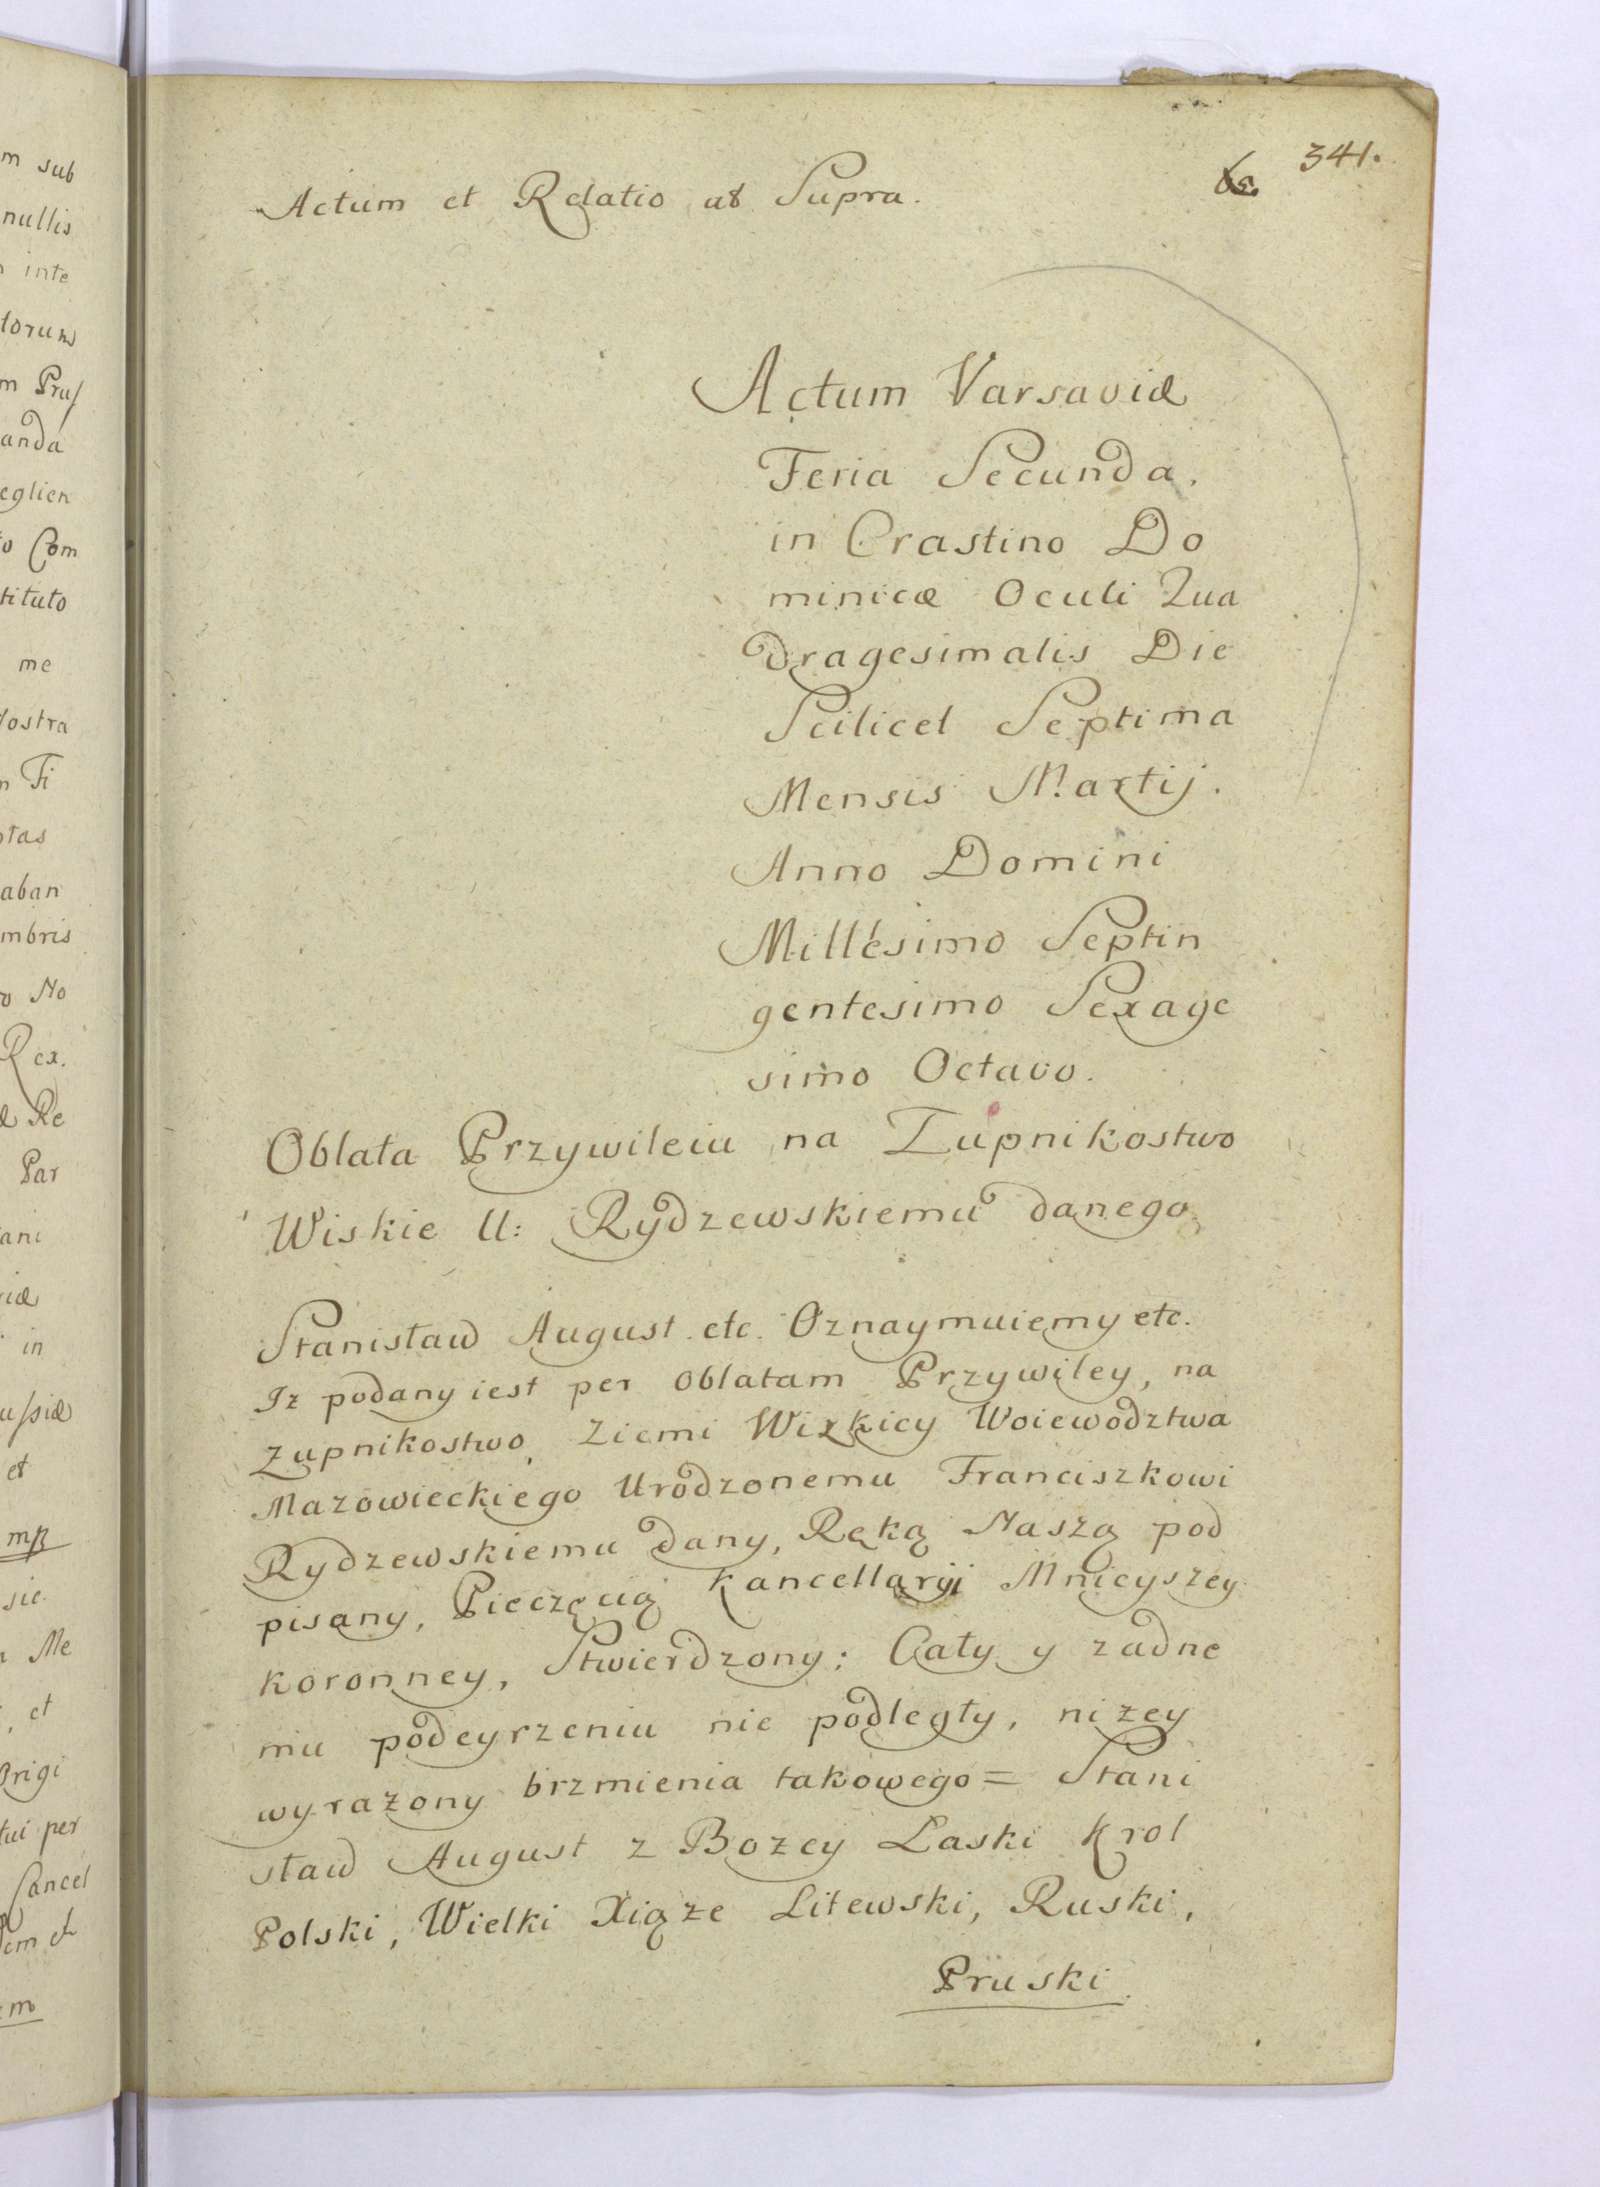 341.
Actum et Relatio ut Supra.
Actum Varsaviæ
Feria Secunda.
in Crastino Do
minicæ Oculi Qua
dragesimalis Die
Scilicet Septima
Mensis Martij.
Anno Domini
Millesimo Septin
gentesimo Sexage
simo Octavo.
Oblata Przywileiu na Zupnikostwo
Wiskie U: Rydzewskiemu danego
Stanisław August etc. Oznaymuiemy etc.
Iz podany iest per oblatam Przywiley, na
Zupnikostwo, Ziemi Wizkiey Woiewodztwa
Mazowieckiego Urodzonemu Franciszkowi
Rydzewskiemu dany, Ręką Naszą pod
pisany, Pieczęcią Kancellaryi Mnieyszey
Koronney, Stwierdzony; Cały y zadne
mu podeyrzeniu nie podległy, niżey
wyrazony brzmienia takowego = Stani
sław August z Bozey Laski Krol
Polski, Wielki Xiąze Litewski, Ruski,
Pruski
m sub
nullis
inte
torum
m Prus
anda
eglien
to Com
tituto
me
Nostra
Fi
otas
aban
mbris
No
Rex.
Re
Par
ani
iæ
in
ussiæ
et
mp
sie.
Me
, et
Origi
tui per
Cancel
em et